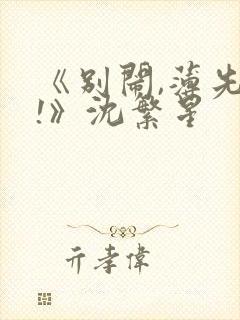 《别闹,薄先
!》沈繁星
亓孝伟